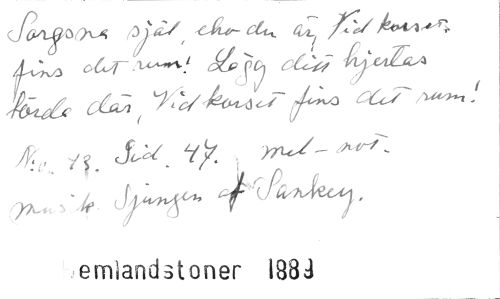 Sorgsna själ, eho du är, Vid korset
fins det rum! Lägg ditt hjertas
börda där, Vid korset fins det rum!
No. 73. Sid. 47. mel-not.
musik Sjungen af Sankey.
emlandstoner 1889